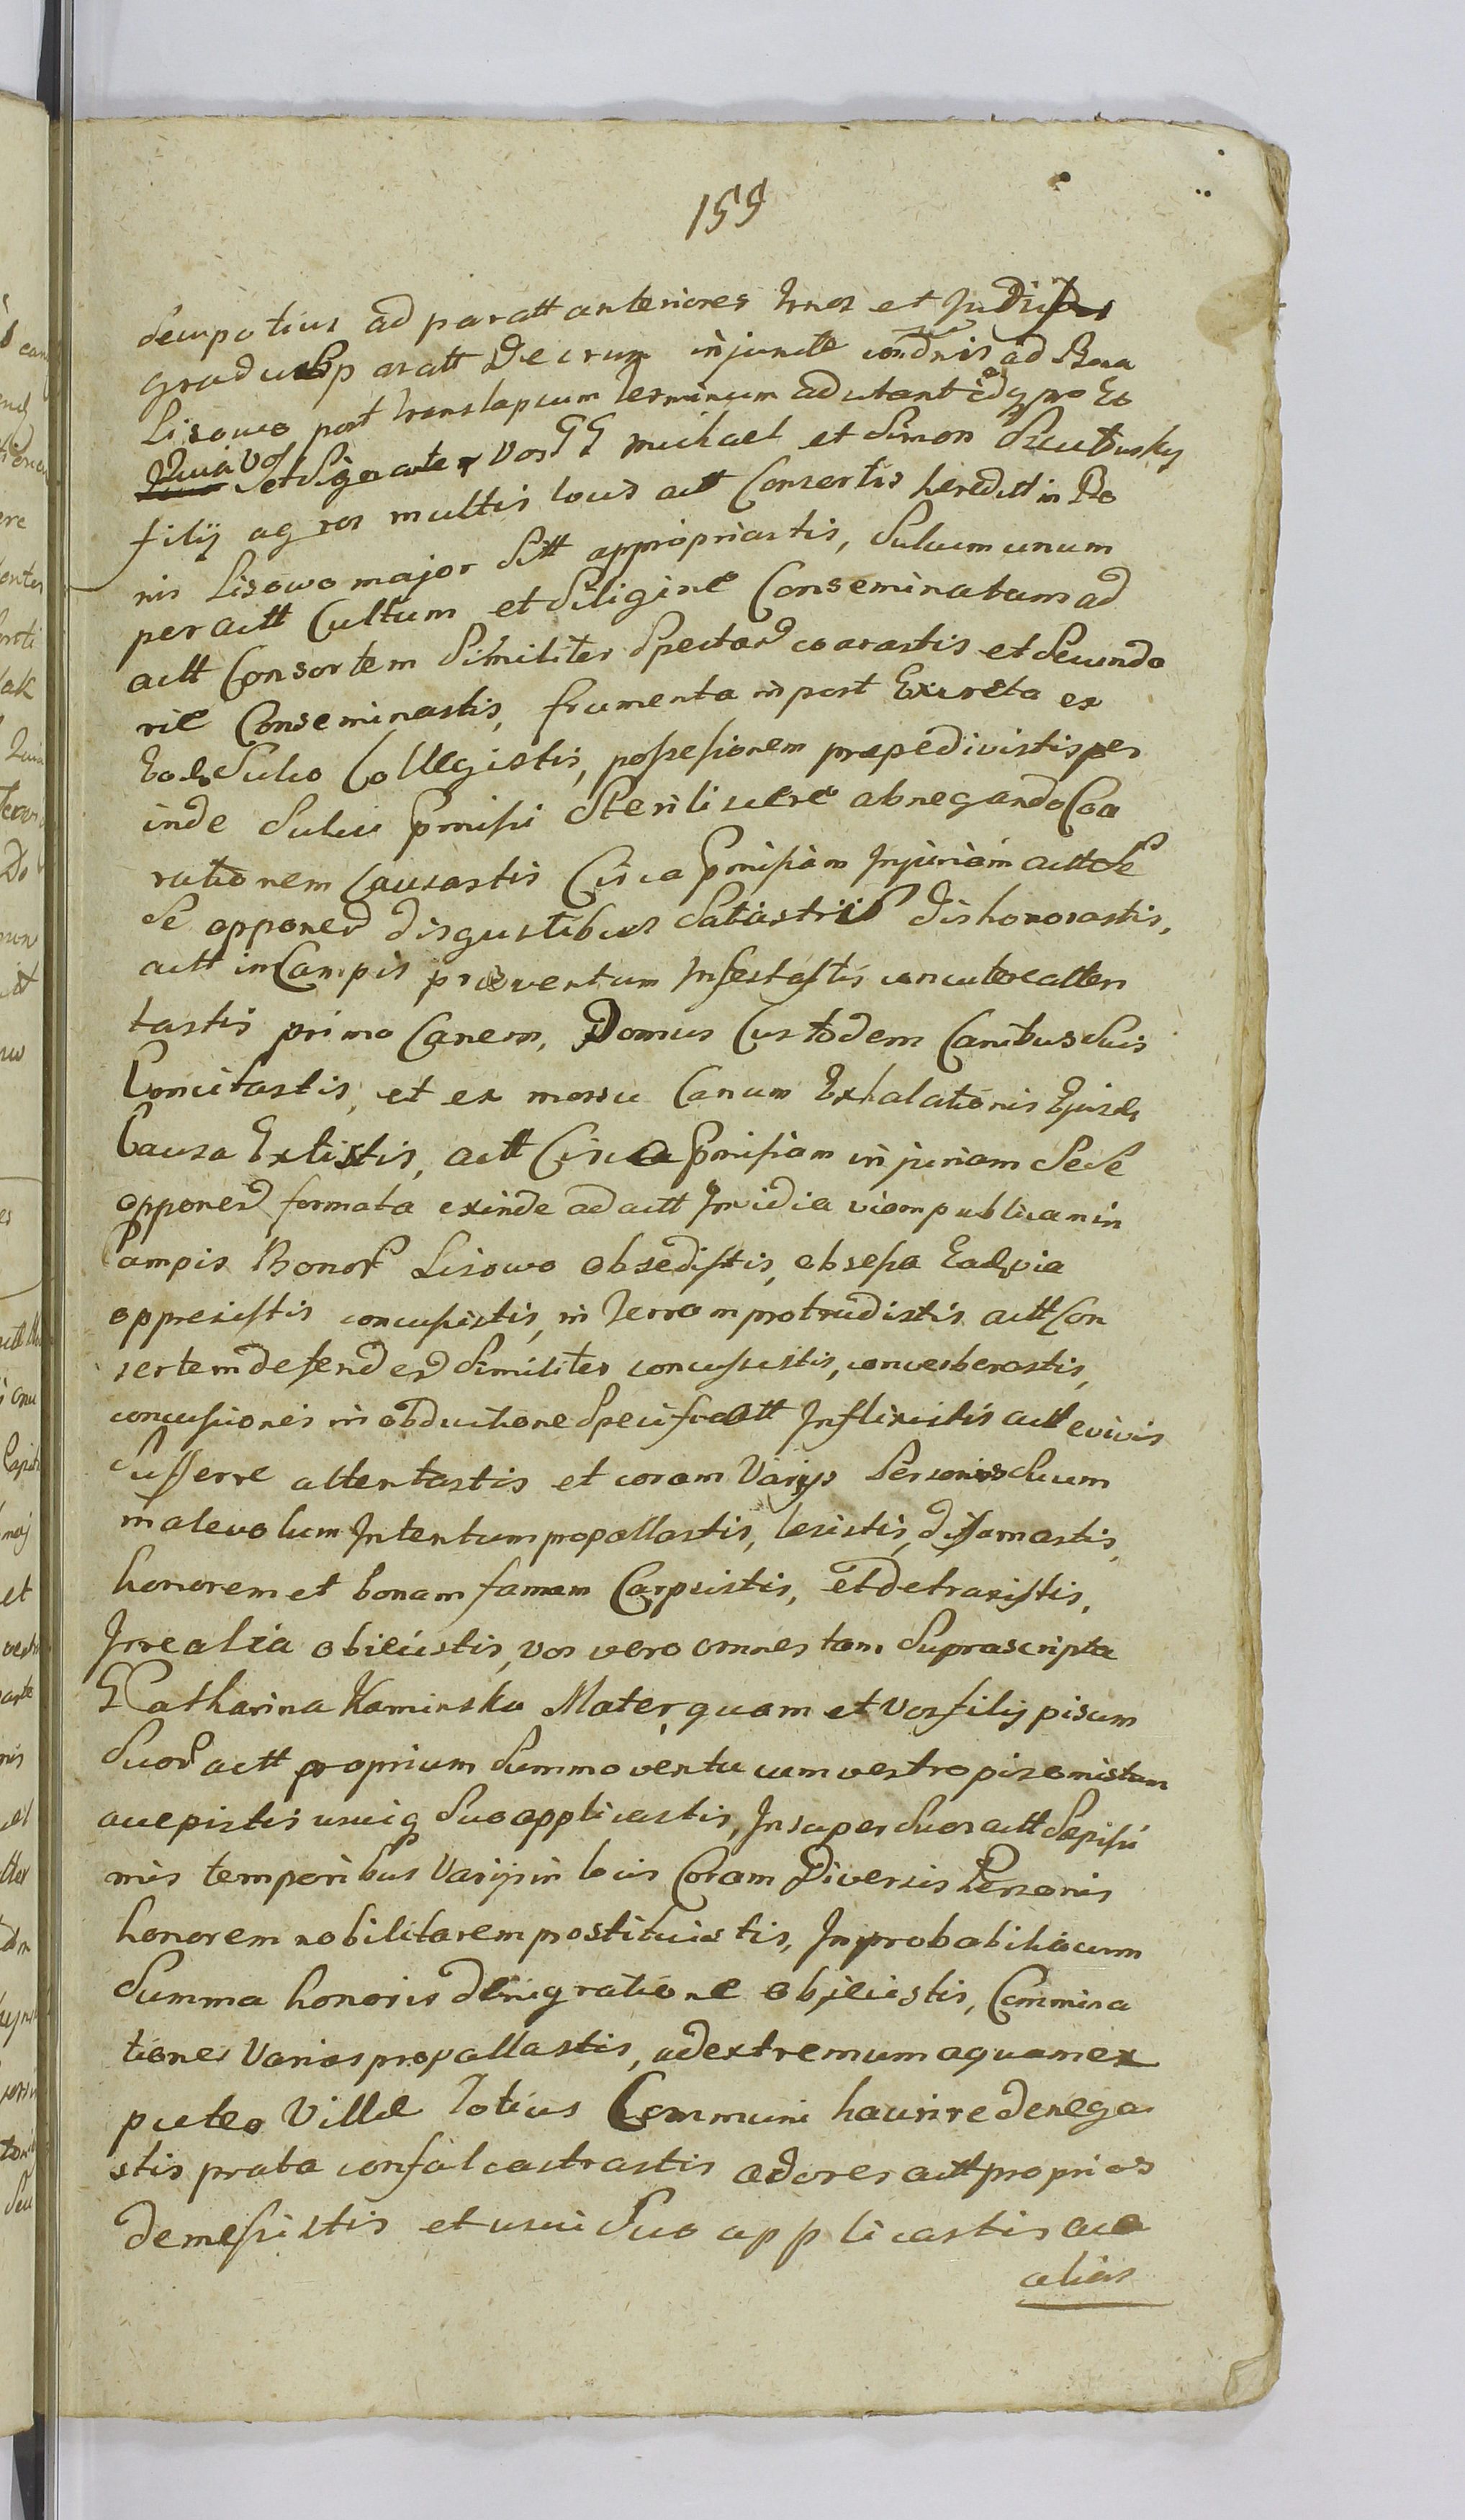 155
seu potius ad paratt anteriores Trnos et Judicior
gradusq paratt Decrum injuncte condnis ad Bona
Lisowo post translapsum Terminum adcitant idq pro Eo
Quia Vos et Signanter Vos GG Michael et Simon
filij agros multis locis actt Consortis heredit in Bo
nis Lisowo major sitt appropriastis, Sulcum unum
per actt Cultum et siligine Conseminatum ad
actt Consortem Similiter Spectan coarastis et Secunda
rie Conseminastis, frumenta inpost Excreta ex
Eod Sulco Collegistis, possessionem præpedivistis per
inde Sulci pmissi Sterilisere abnegando Coa
rationem Causastis Circa pmissam Injuriam actt Se
Se opponen disgustibus dishonorastis,
actt in Campis præventum Infestastis concutere atten
tastis primo Canem, Domus Custodem Canibus Suis
Concitastis, et ex morsu Canum Exhalationis Ejusd
Causa Extitistis, actt Circa pmissam injuriam Sese
opponen formata exinde ad actt Invidia viam publicam in
Campis Bonor Lisowo obsedistis, obsessa Ead via
oppressistis concussistis, in Terram protrudistis actt Con
sortem defenden Similiter concussistis, converberastis,
concussiones in obductione Specificatt Inflixistis actt e vivis
Sufferre attentastis et coram Varijs Personis Suum
malevolum Intentum propallastis, lesistis, diffamastis,
honorem et bonam famam Carpsistis, et detraxistis,
Irrealia obiecistis, vos vero omnes tam Suprascripta
G Catharina Kaminska Mater, quam et Vos filij pisum
Suor actt proprium Summo ventu cum vestro piso mistum
accepistis usuiq Suo applicastis, Insuper Suos actt Sæpissi
mis temporibus Varijs in locis Coram Diversis Personis
honorem nobilitarem prostituistis, Improbabilia cum
Summa honoris denigratione objecistis, Commina
tiones Varias propallastis, ad extremum aquam ex
puteo Villæ Totius Communi haurire denega
stis prata confalcastrastis adores actt proprios
demessistis et usui Suo applicastis ac
alias